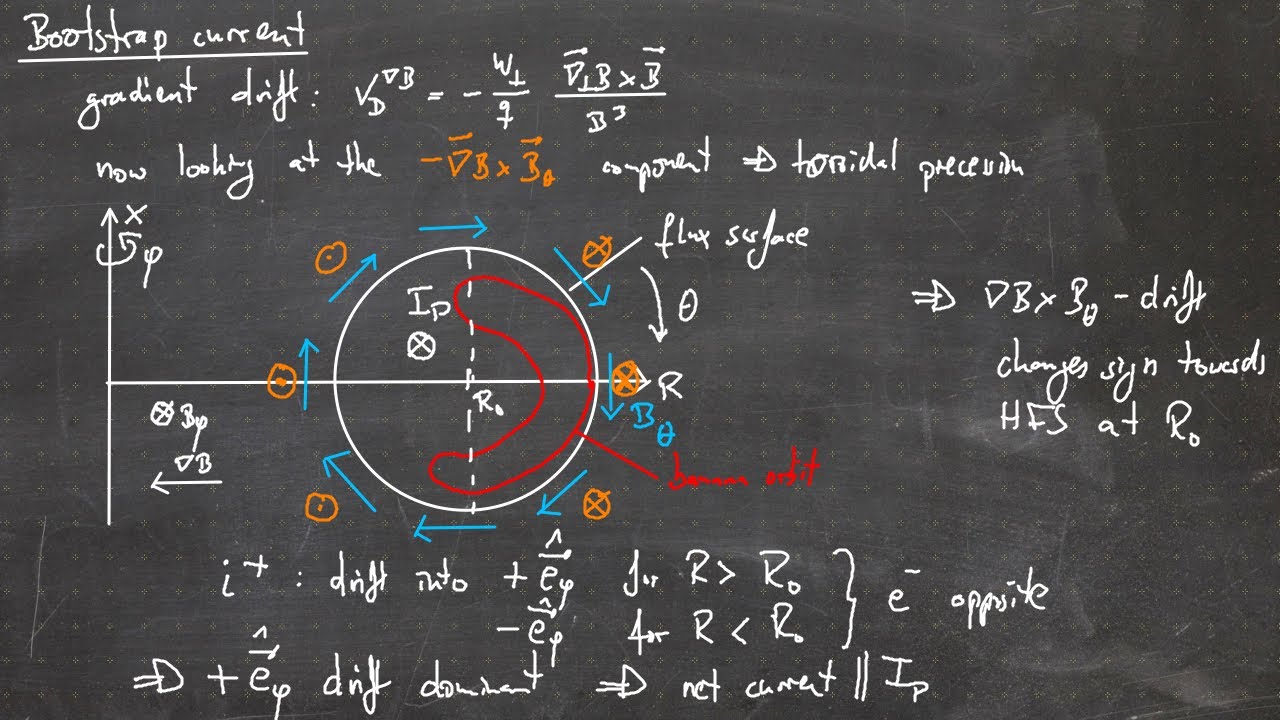 Bootstrap current
gradient drift: V_D^∇B = - W⊥/q ∇⃗⊥B × B⃗ / B³
now looking at the -∇⃗B × B⃗_θ component ⇒ toroidal precession
X
φ
flux surface
I_p
⊗
θ
⇒ ∇B × B_θ - drift
changes sign towards
HFS at R₀
R
R₀
⊗ B_φ
B_θ
∇B
banana orbit
i⁺ : drift into + ê_φ for R > R₀
- ê_φ for R < R₀ } e⁻ opposite
⇒ + ê_φ drift dominant ⇒ net current ∥ I_p